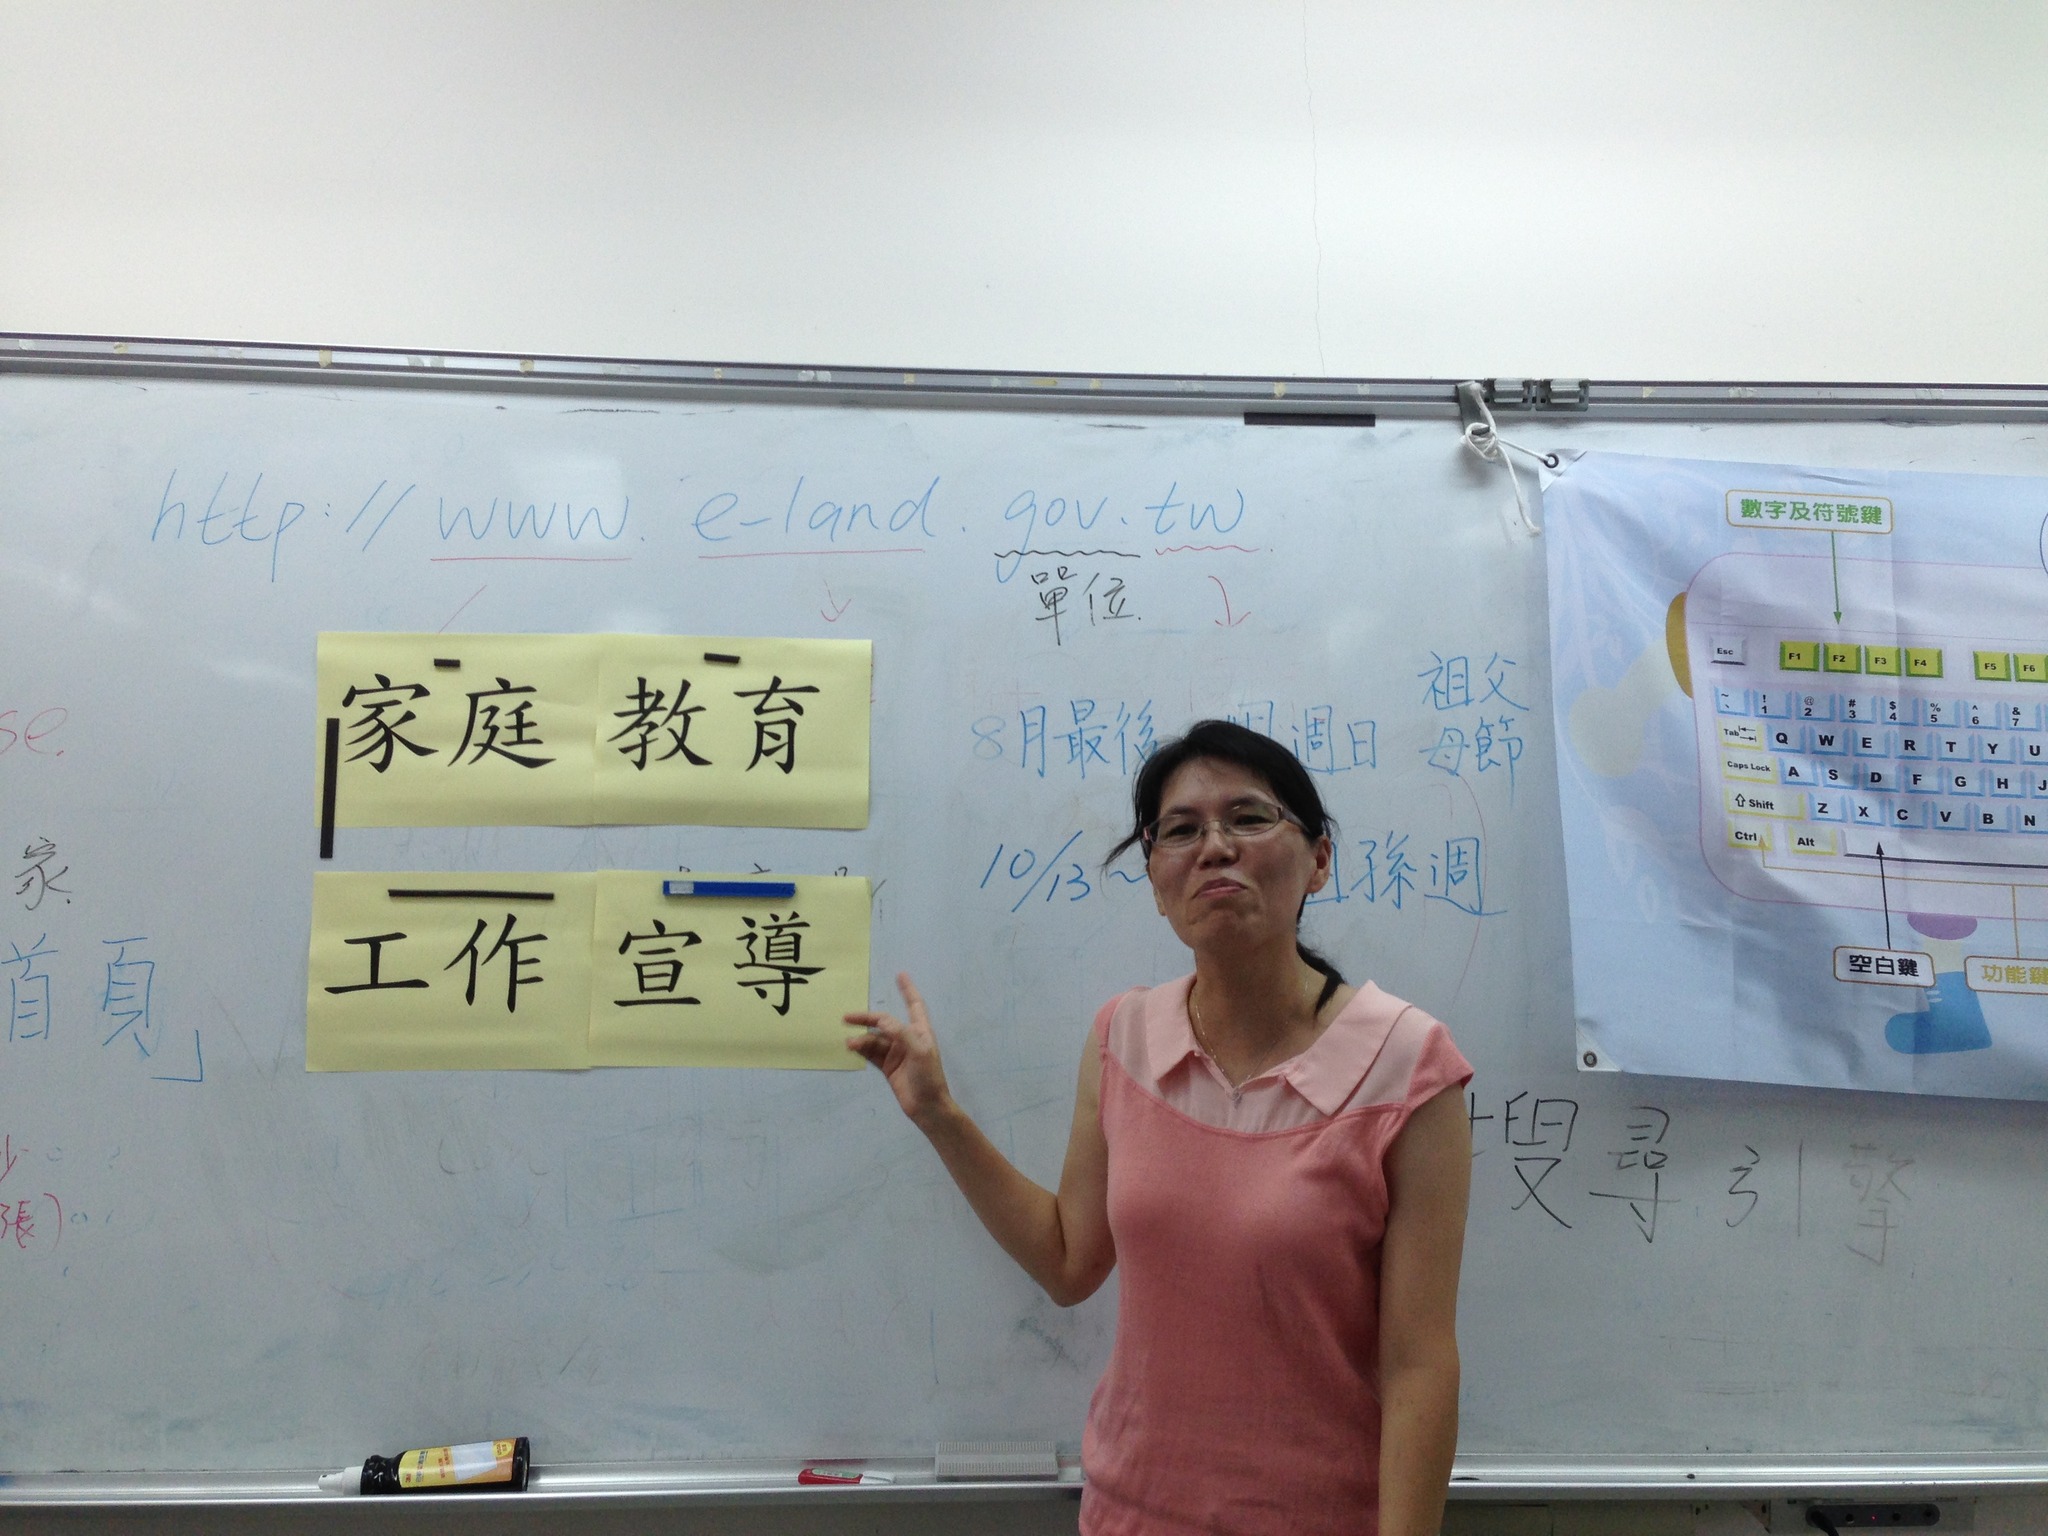 http://www.e-land.gov.tw
單位
家庭教育
工作宣導
8月最後
週日
祖父
母節
10/13~
祖孫週
se.
家
首頁」
張)
搜尋引擎
數字及符號鍵
Esc F1 F2 F3 F4 F5 F6
~ ` ! 1 @ 2 # 3 $ 4 % 5 ^ 6 & 7
Tab Q W E R T Y U
Caps Lock A S D F G H J
Shift Z X C V B N
Ctrl Alt
空白鍵
功能鍵